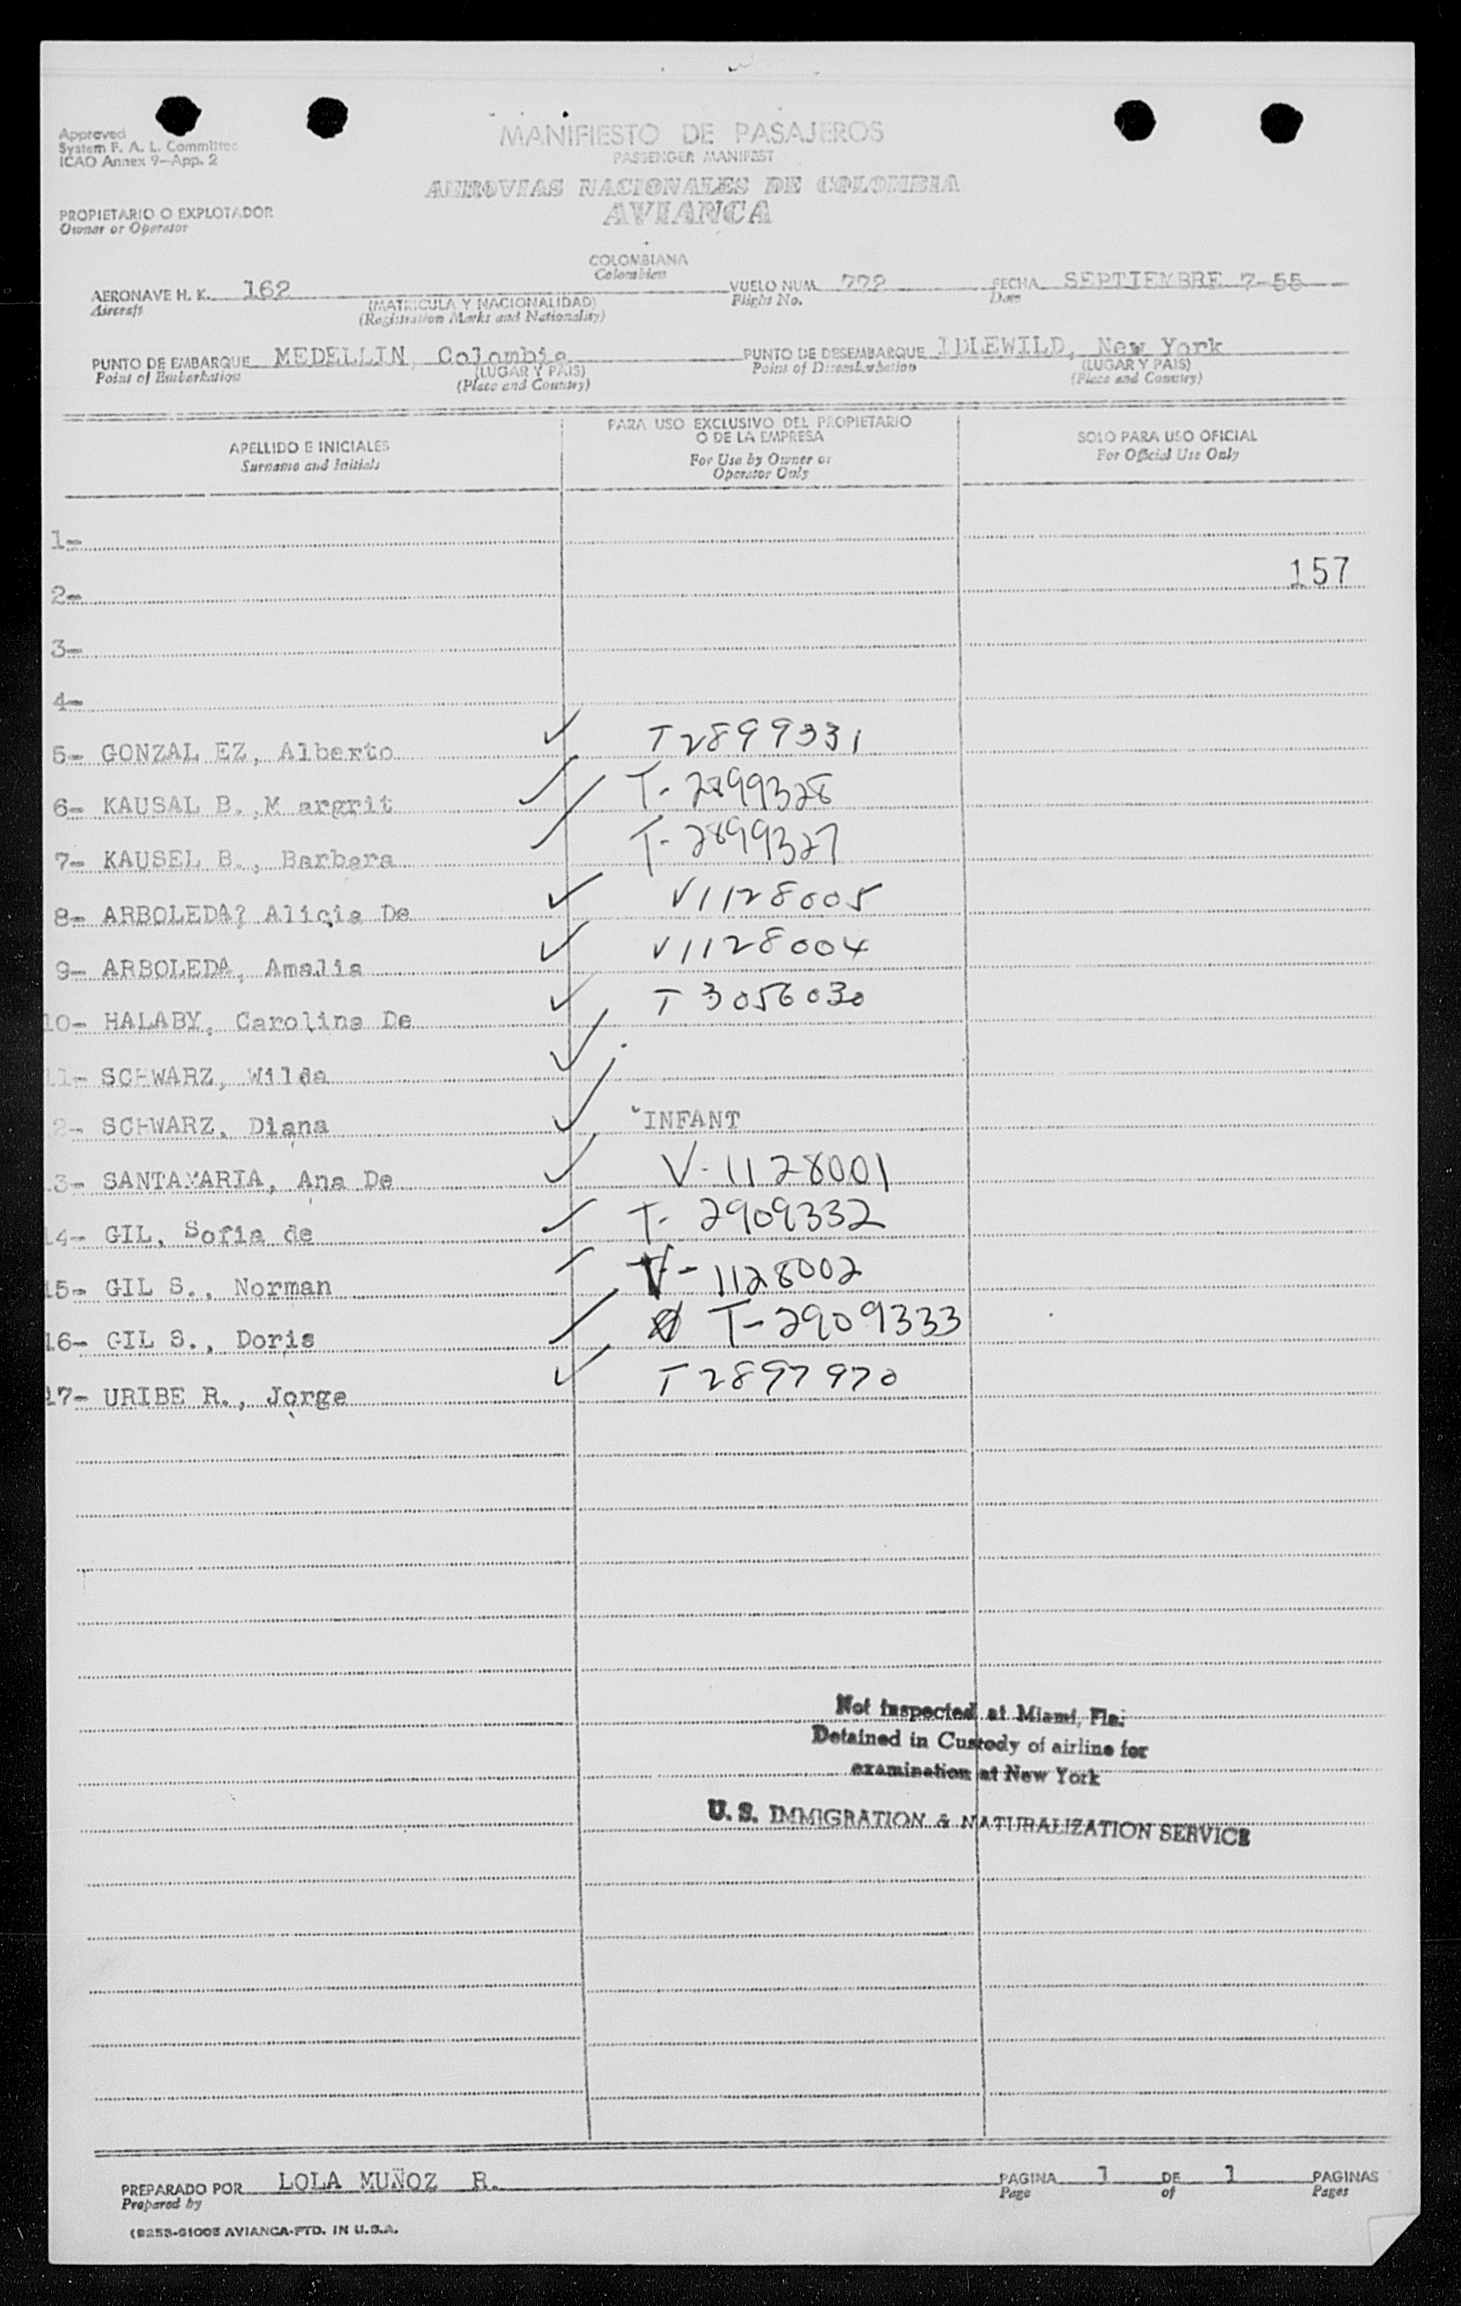 Approved
System F. A. L. Committee
ICAO Annex 9-App. 2
MANIFIESTO DE PASAJEROS
PASSENGER MANIFEST
AEROVIAS NACIONALES DE COLOMBIA
AVIANCA
PROPIETARIO O EXPLOTADOR
Owner or Operator
COLOMBIANA
Colombian
AERONAVE H. K. 162 VUELO NUM. 772 FECHA SEPTIEMBRE 7-55
Aircraft (MATRICULA Y NACIONALIDAD) Flight No. Date
(Registration Marks and Nationality)
PUNTO DE EMBARQUE MEDELLIN, Colombia PUNTO DE DESEMBARQUE IDLEWILD, New York
Point of Embarkation (LUGAR Y PAIS) Point of Disembarkation (LUGAR Y PAIS)
(Place and Country) (Place and Country)
APELLIDO E INICIALES
Surname and Initials
PARA USO EXCLUSIVO DEL PROPIETARIO
O DE LA EMPRESA
For Use by Owner or
Operator Only
SOLO PARA USO OFICIAL
For Official Use Only
1-
157
2-
3-
4-
5- GONZAL EZ, Alberto ✓ T2899331
6- KAUSAL B.,M argrit ✓ T-2899328
7- KAUSEL B., Barbara ✓ T-2899327
8- ARBOLEDA? Alicia De ✓ V1128005
9- ARBOLEDA, Amalia ✓ V1128004
10- HALABY, Carolina De ✓ T3056030
11- SCHWARZ, Wilda ✓
2- SCHWARZ, Diana ✓ INFANT
3- SANTAMARIA, Ana De ✓ V-1128001
14- GIL, Sofia de ✓ T-2909332
15- GIL S., Norman ✓ V-1128002
16- GIL S., Doris ✓ T-2909333
17- URIBE R., Jorge ✓ T2897970
Not inspected at Miami, Fla.
Detained in Custody of airline for
examination at New York
U. S. IMMIGRATION & NATURALIZATION SERVICE
PREPARADO POR LOLA MUÑOZ R. PAGINA 1 DE 1 PAGINAS
Prepared by Page of Pages
(8253-61005 AVIANCA-PTD. IN U.S.A.